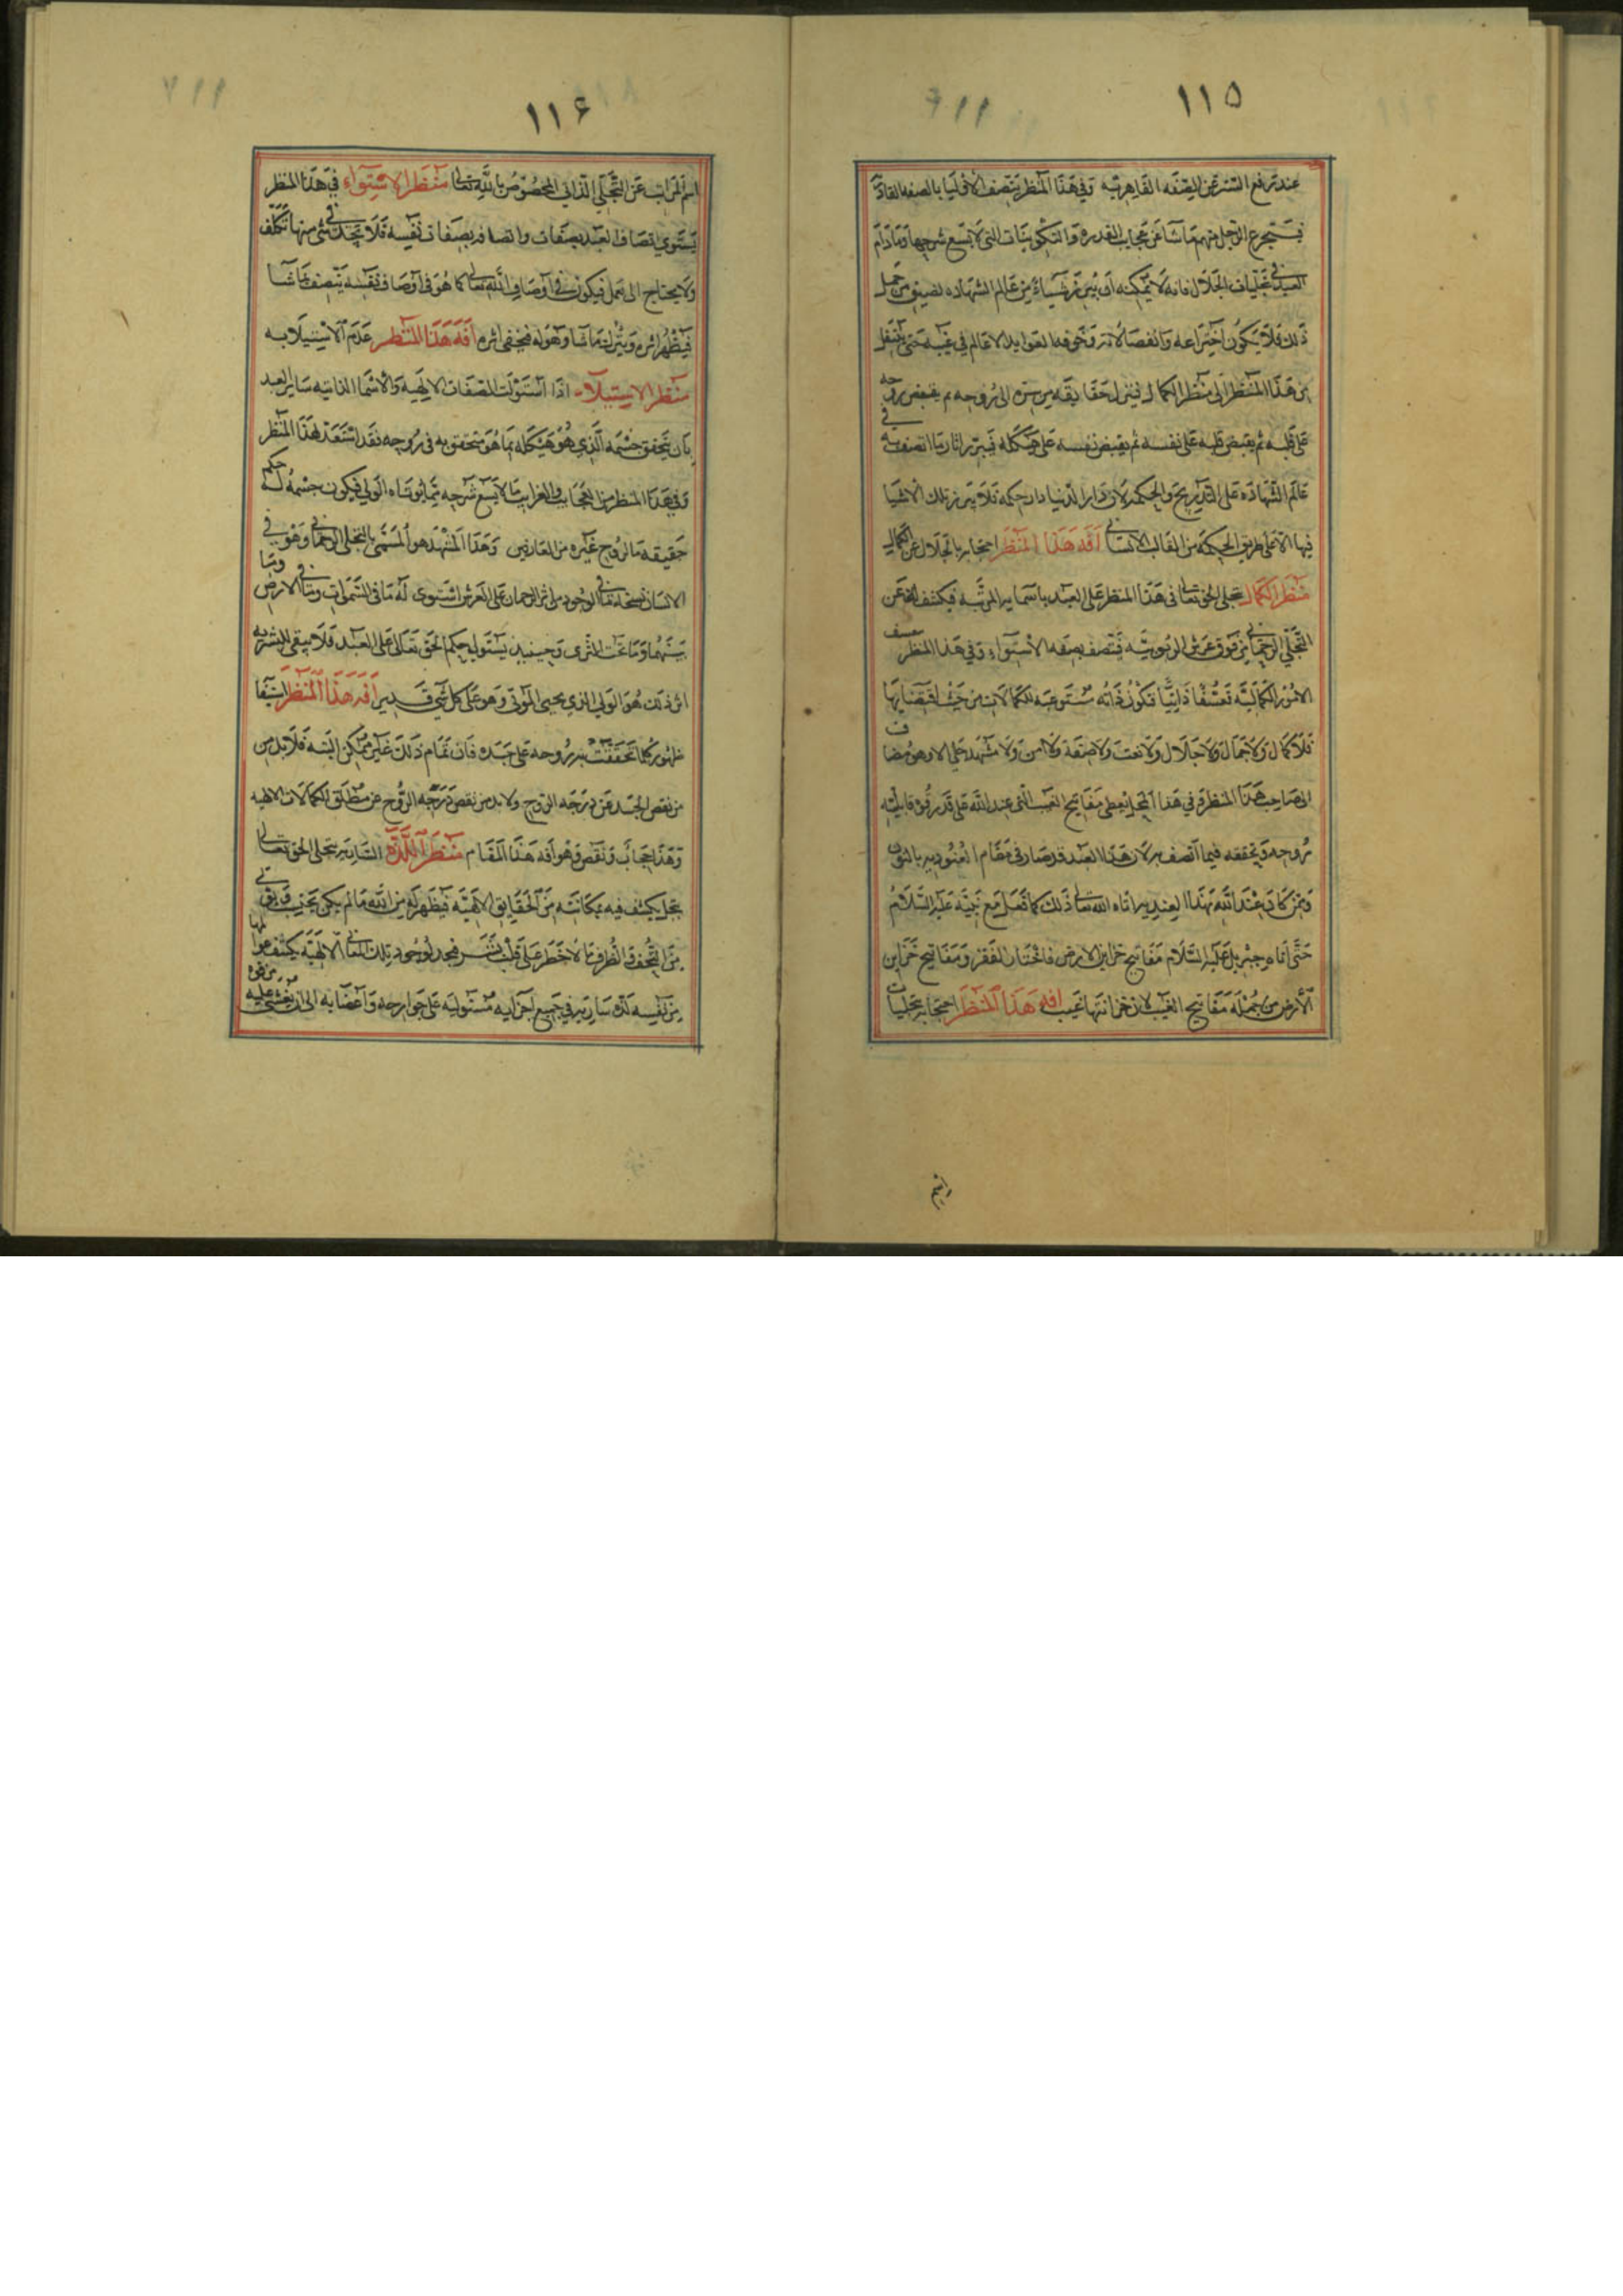 ١١٥
عند ترفع التنزه عن الصفه القاهريه وفي هذا المنظر يتصف الاوليا بالصفه القادريه
الرجل منهم ما شا من عجايب القدره والتكوينات التي لا يسع شرحها وما دام
العبد في تجليات الجلال فانه لا يمكنه ان يبرز شياء من عالم الشهاده لضيق من حمل
ذلك فلا يكون اختراعه الا عالم في غيبه حتى ينتقل
من هذا المنظر الى منظر الكمال فينزل حقايقه من سره الى روحه ثم يقبض روحه
على قلبه ثم يقبض قلبه على نفسه ثم يقبض نفسه على هيكله اثار ما اتصف به في
عالم الشهاده على التدريج والحكمه لان دار الدنيا دار حكمه فلا يبرز تلك الاشيا
فيها الا على طريق الحكمه من القالب الانساني افه هذا المنظر احتجابه بالجلال عن الكمال
منظر الكمال تجلى الحق تعالى في هذا المنظر على العبد باسمايه المرتبه فيكشف له عن
التجلي الرحماني من فوق عرش الربوبيه فيتصف بصفه الاستواء وفي هذا المنظر
الامور الكماليه تعشقا ذاتيا فتكون ذاته مستوعبه للكمالات من حيث اقتضايها
فلا كمال ولا جمال ولا جلال ولا نعت ولا صفة ولا ولا مشهد على الا وهو مضاف
الى صاحب هذا المنظر وفي هذا التجلي يعطى مفاتيح الغيب التي عند الله على قدر قابليه
روحه وتحققه فيما اتصف به لان هذا العبد قد صار في مقام
ومن كان عند الله بهذا اتاه الله تعالى ذلك كما فعل مع نبيه عليه السلام
حتى اتاه جبريل عليه السلام مفاتيح خزاين الارض فاختار الفقر ومفاتيح خزاين
الارض من جمله مفاتيح الغيب لان خزانتها غيب افه هذا المنظر احتجابه بتجليات
١١٦
اسم المراتب عن التجلي الذاتي المخصوص بالله تعالى منظر الاستواء في هذا المنظر
يستوي اتصاف العبد بصفات واتصافه بصفات نفسه فلا يجد في شي منها تكلف
ولا يحتاج الى تعمل فيكون في اوصاف الله تعالى كما هو في اوصاف نفسه يتصف بما شا
فيظهر اثره ويترك ما شا وهو له فيخفى اثره افه هذا المنظر عدم الاستيلا به
منظر الاستيلاء اذا استولت الصفات الالهيه والاسما الذاتيه ساير العبد
بان يتحقق جسمه الذي هو هيكله بما هو متحقق به في روحه فقد استعد لهذا المنظر
وفي هذا المنظر من العجايب والغرايب ما لا يسع شرحه الولي فيكون جسمه له حكم
حقيقه ما لروح غيره من العارفين وهذا المشهد هو المسمى بالتجلي الرحماني وهو في
الانسان نسخه ما في الوجود من اثر الرحمان على العرش استوى له ما في السموات وما في الارض وما
بينهما وما تحت الثرى وحينيذ يستولي حكم الحق تعالى على العبد فلا يبقى للبشريه
اثر ذلك هو الولي الذي يحيى الموتى وهو على كل شي قدير افه هذا المنظر
ظهور كلما تحققت به روحه على جسده فان تمام ذلك غير ممكن البته فلا بد من
من نقص الجسد عن درجه الروح ولا بد من نقص درجه الروح عن مطلق الكمالات الالهيه
وهذا حجاب ونقص وهو افه هذا المقام منظر اللذة الساريه يتجلى الحق تعالى
بتجل يكشف فيه مكانته من الحقايق الالهيه فيظهر له من الله ما لم يكن
من التحف والطرف ما لا خطر على قلب بشر فيجد لوجود تلك المعاني الالهيه يكشف
من نفسه لذه ساريه في جميع اجزايه مستوليه على جوارحه واعضايه الى ان يغشى عليه